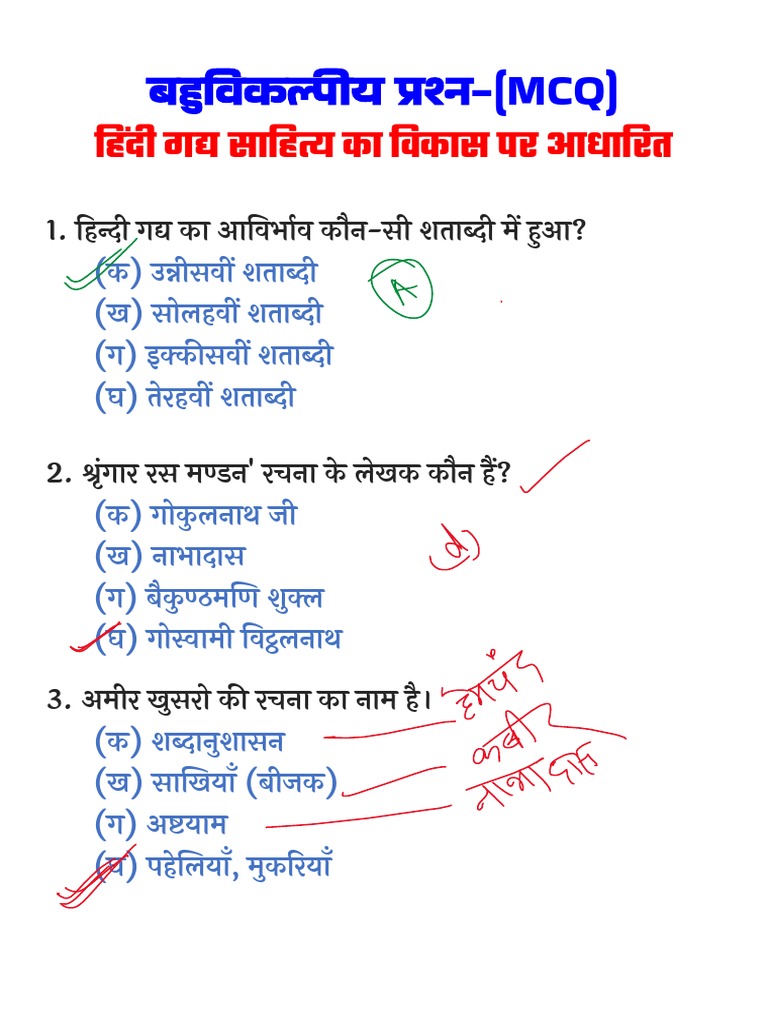 बहुविकल्पीय प्रश्न-(MCQ)
हिंदी गद्य साहित्य का विकास पर आधारित
1. हिन्दी गद्य का आविर्भाव कौन-सी शताब्दी में हुआ?
(क) उन्नीसवीं शताब्दी
A
(ख) सोलहवीं शताब्दी
(ग) इक्कीसवीं शताब्दी
(घ) तेरहवीं शताब्दी
2. श्रृंगार रस मण्डन' रचना के लेखक कौन हैं?
(क) गोकुलनाथ जी
(ख) नाभादास
d)
(ग) बैकुण्ठमणि शुक्ल
(घ) गोस्वामी विट्ठलनाथ
3. अमीर खुसरो की रचना का नाम है।
(क) शब्दानुशासन
हेमचंद
(ख) साखियाँ (बीजक)
कबीर
(ग) अष्टयाम
नाभादास
(घ) पहेलियाँ, मुकरियाँ